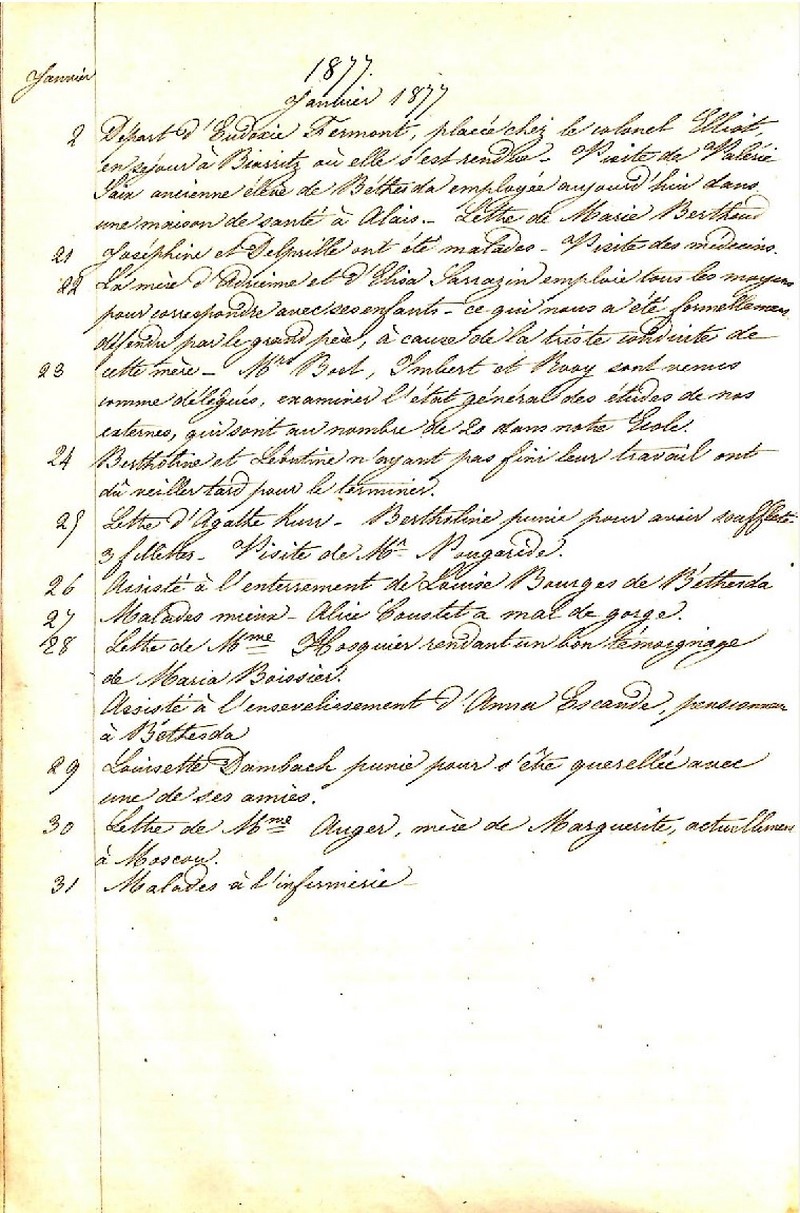 1877.
Janvier
Janvier 1877
2 Départ d'Eudoxie Fermont, placée chez le colonel Elliot,
en séjour à Biarritz où elle s'est rendue - Visite de Valérie
Saix ancienne élève de Béthesda employée aujourd'hui dans
une maison de santé à Alais - Lettre de Marie Berthoud
21 Joséphine et Delprille ont été malades - Visite des médecins.
22 La mère d'Adrienne et d'Elisa Sarrazin emploie tous les moyens
pour correspondre avec ses enfants - ce qui nous a été formellement
défendu par le grand père, à cause de la triste conduite de
23 cette mère - Mrs Bost, Imbert et Rooy sont venus
comme délégués, examiner l'état général des études de nos
externes, qui sont au nombre de 20 dans notre Ecole.
24 Bertholine et Léontine n'ayant pas fini leur travail ont
dû veiller tard pour le terminer.
25 Lettre d'Agathe Kurr - Bertholine punie pour avoir souffleté
3 fillettes - Visite de Mr Pougaride.
26 Assisté à l'enterrement de Louise Bourges de Béthesda
27 Malades mieux - Alice Coustet a mal de gorge.
28 Lettre de Mme Hosquier rendant un bon témoignage
de Maria Boissier.
Assisté à l'ensevelissement d'Anna Escande, pensionnaire
à Béthesda
29 Louisette Dambach punie pour s'être querellée avec
une de ses amies.
30 Lettre de Mme Auger, mère de Marguerite, actuellement
à Moscou.
31 Malades à l'infirmerie -